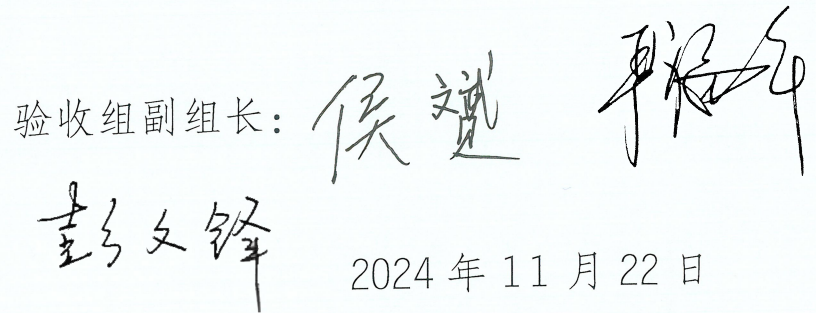 验收组副组长：侯赟
彭文锋
2024年11月22日